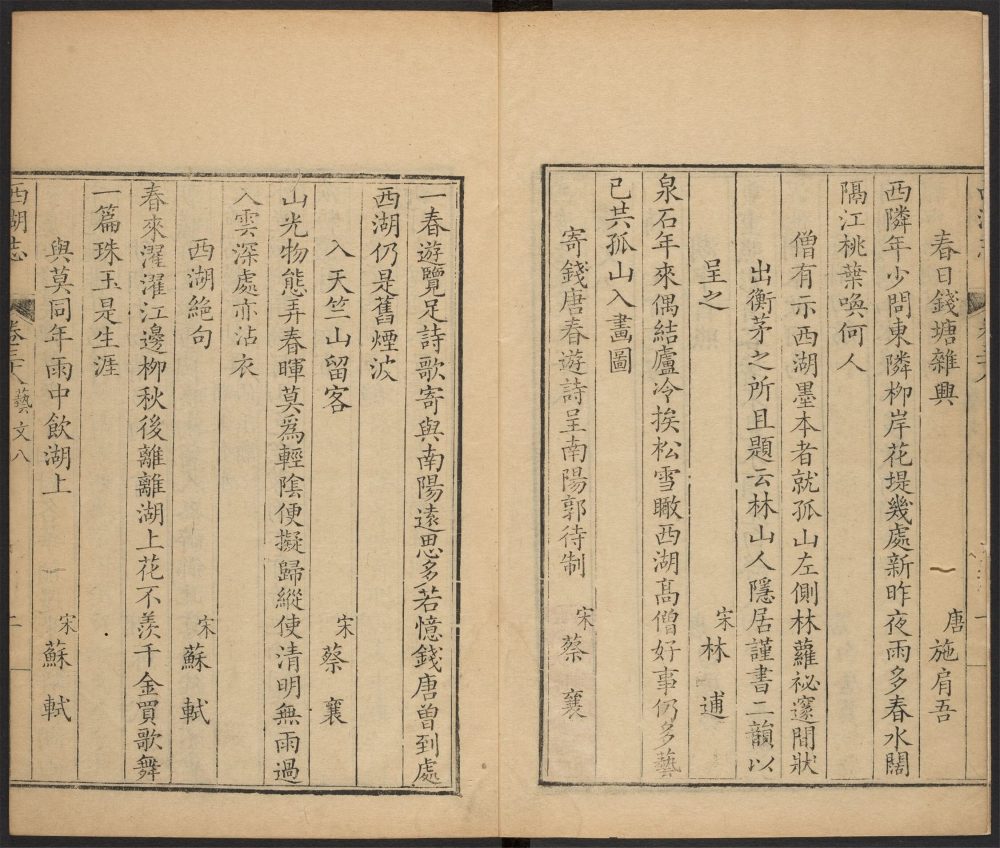 春日錢塘雜興 唐 施肩吾
西隣年少問東隣柳岸花堤幾處新昨夜雨多春水闊
隔江桃葉喚何人
僧有示西湖墨本者就孤山左側林蘿祕邃間狀
出衡茅之所且題云林山人隱居謹書二韻以
呈之 宋 林逋
泉石年來偶結廬冷挨松雪瞰西湖高僧好事仍多藝
已共孤山入畫圖
寄錢唐春遊詩呈南陽郭待制 宋 蔡襄
一春遊覽足詩歌寄與南陽遠思多若憶錢唐曾到處
西湖仍是舊煙波
入天竺山留客 宋 蔡襄
山光物態弄春暉莫爲輕陰便擬歸縱使清明無雨過
入雲深處亦沾衣
西湖絶句 宋 蘇軾
春來濯濯江邊柳秋後離離湖上花不羨千金買歌舞
一篇珠玉是生涯
與莫同年雨中飲湖上 宋 蘇軾
西湖志 卷三十八 藝文八 二